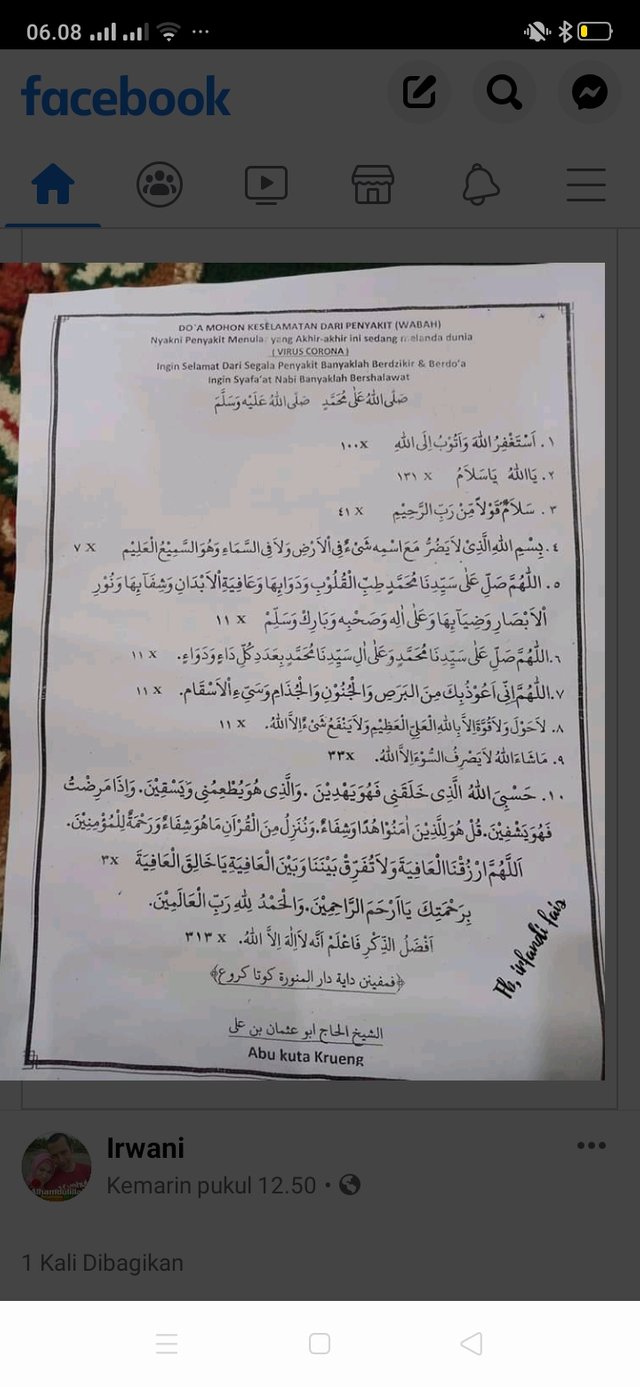 06.08
facebook
DO'A MOHON KESELAMATAN DARI PENYAKIT (WABAH)
Nyakni Penyakit Menular yang Akhir-akhir ini sedang melanda dunia
( VIRUS CORONA )
Ingin Selamat Dari Segala Penyakit Banyaklah Berdzikir & Berdo'a
Ingin Syafa'at Nabi Banyaklah Bershalawat
صَلَّى اللهُ عَلَى مُحَمَّدٍ صَلَّى اللهُ عَلَيْهِ وَسَلَّمَ
١. اَسْتَغْفِرُ اللهَ وَاَتُوْبُ اِلَى اللهِ ١٠٠x
٢. يَا اللهُ يَاسَلَامُ ١٣١ x
٣. سَلَامٌ قَوْلًا مِنْ رَبِّ الرَّحِيْمِ ٤١ x
٤. بِسْمِ اللهِ الَّذِىْ لَا يَضُرُّ مَعَ اسْمِهِ شَىْءٌ فِى الْاَرْضِ وَلَا فِى السَّمَاءِ وَهُوَ السَّمِيْعُ الْعَلِيْمِ ٧ x
٥. اَللّٰهُمَّ صَلِّ عَلَى سَيِّدِنَا مُحَمَّدٍ طِبِّ الْقُلُوْبِ وَدَوَابِهَا وَعَافِيَةِ الْاَبْدَانِ وَشِفَآبِهَا وَنُوْرِ
الْاَبْصَارِ وَضِيَآبِهَا وَعَلَى اٰلِهِ وَصَحْبِهِ وَبَارِكْ وَسَلِّمْ ١١ x
٦. اَللّٰهُمَّ صَلِّ عَلَى سَيِّدِنَا مُحَمَّدٍ وَعَلَى اٰلِ سَيِّدِنَا مُحَمَّدٍ بِعَدَدِ كُلِّ دَاءٍ وَدَوَاءٍ. ١١ x
٧. اَللّٰهُمَّ اِنِّى اَعُوْذُ بِكَ مِنَ الْبَرَصِ وَالْجُنُوْنِ وَالْجُذَامِ وَسَيِّءِ الْاَسْقَامِ. ١١ x
٨. لَاحَوْلَ وَلَاقُوَّةَ اِلَّا بِاللهِ الْعَلِيِّ الْعَظِيْمِ وَلَا يَنْفَعُ شَىْءٌ اِلَّا اللهُ. ١١ x
٩. مَاشَاءَ اللهُ لَا يَصْرِفُ السُّوْءَ اِلَّا اللهُ. ٣٣x
١٠. حَسْبِيَ اللهُ الَّذِى خَلَقَنِى فَهُوَ يَهْدِيْنَ. وَالَّذِى هُوَ يُطْعِمُنِى وَيَسْقِيْنَ. وَاِذَا مَرِضْتُ
فَهُوَ يَشْفِيْنَ. قُلْ هُوَ لِلَّذِيْنَ اٰمَنُوْا هُدًا وَشِفَاءٌ. وَنُنَزِلُ مِنَ الْقُرْاٰنِ مَا هُوَ شِفَاءٌ وَرَحْمَةٌ لِلْمُؤْمِنِيْنَ.
اَللّٰهُمَّ ارْزُقْنَا الْعَافِيَةَ وَلَا تُفَرِّقْ بَيْنَنَا وَبَيْنَ الْعَافِيَةِ يَاخَالِقَ الْعَافِيَةَ ٣x
بِرَحْمَتِكَ يَا اَرْحَمَ الرَّاحِمِيْنَ. وَالْحَمْدُ لِلّٰهِ رَبِّ الْعَالَمِيْنَ.
اَفْضَلُ الذِّكْرِ فَاعْلَمْ اَنَّهُ لَا اِلٰهَ اِلَّا اللهُ. ٣١٣ x
﴿فمفينن داية دار المنورة كوتا كروع﴾
الشيخ الحاج ابو عثمان بن على
Abu kuta Krueng
Irwani
Kemarin pukul 12.50
1 Kali Dibagikan